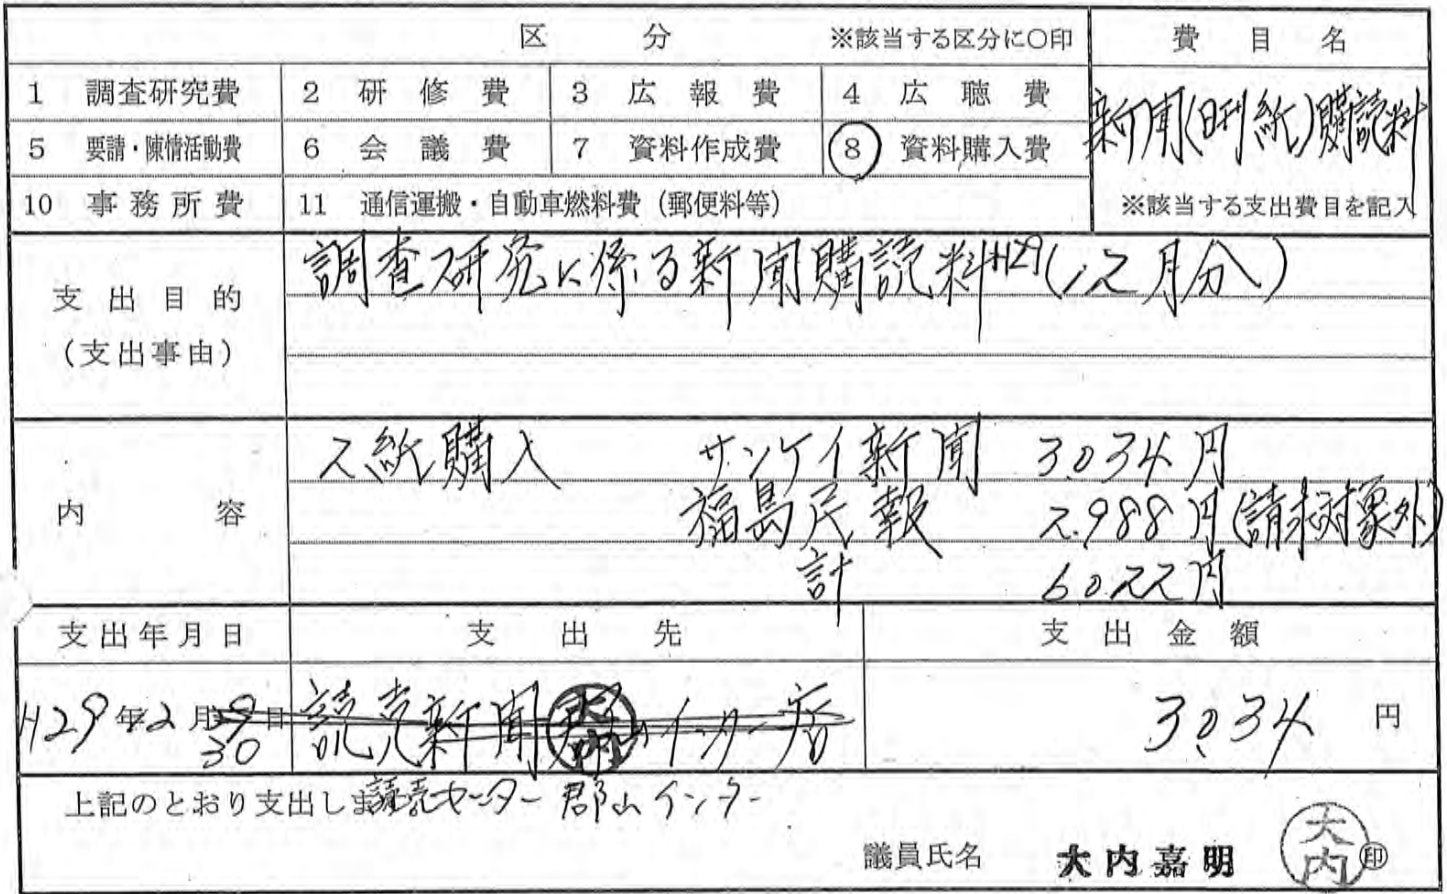 区　分　※該当する区分に○印　費　目　名
1　調査研究費　2　研　修　費　3　広　報　費　4　広　聴　費
新聞(日刊紙)購読料
5　要請・陳情活動費　6　会　議　費　7　資料作成費　8　資料購入費
10　事務所費　11　通信運搬・自動車燃料費（郵便料等）　※該当する支出費目を記入
支出目的
（支出事由）
調査研究に係る新聞購読料H29(12月分)
内　容
2紙購入　サンケイ新聞　3034円
福島民報　2.988円(請求対象外)
計　6022円
支出年月日　支　出　先　支　出　金　額
H29年12月 日　読売新聞 インター店　3034　円
30
上記のとおり支出しま 読売センター郡山インター
議員氏名　大内嘉明　大内　印